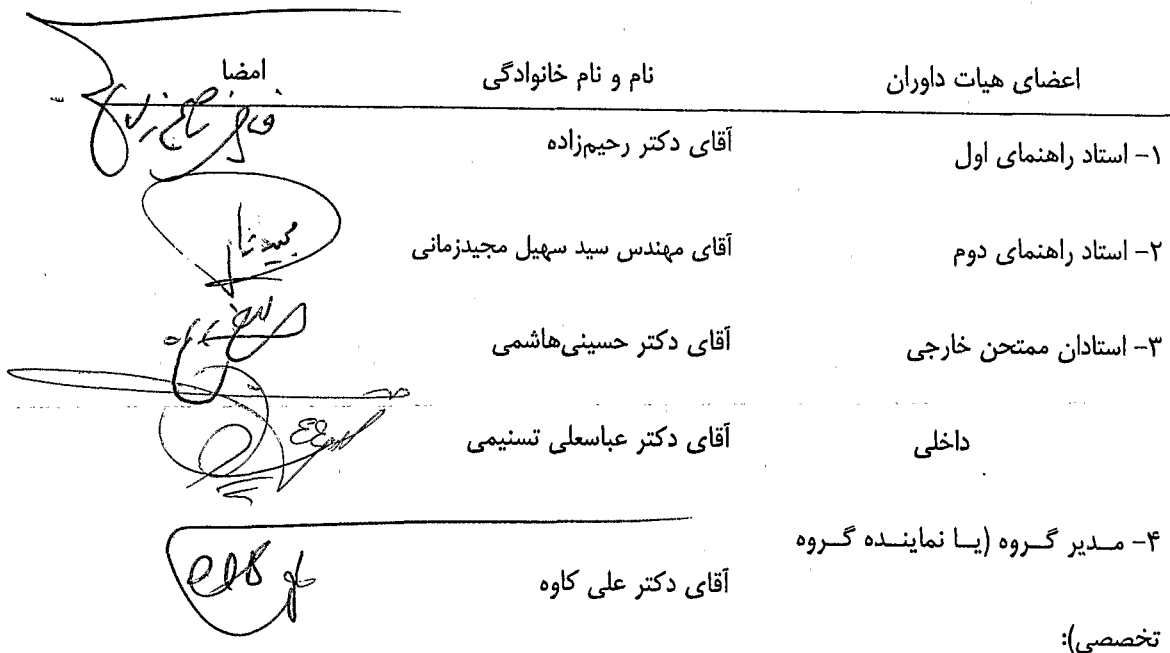 اعضای هیات داوران نام و نام خانوادگی امضا
۱- استاد راهنمای اول آقای دکتر رحیم‌زاده
۲- استاد راهنمای دوم آقای مهندس سید سهیل مجیدزمانی
۳- استادان ممتحن خارجی آقای دکتر حسینی‌هاشمی
داخلی آقای دکتر عباسعلی تسنیمی
۴- مدیر گروه (یا نماینده گروه
آقای دکتر علی کاوه
تخصصی):